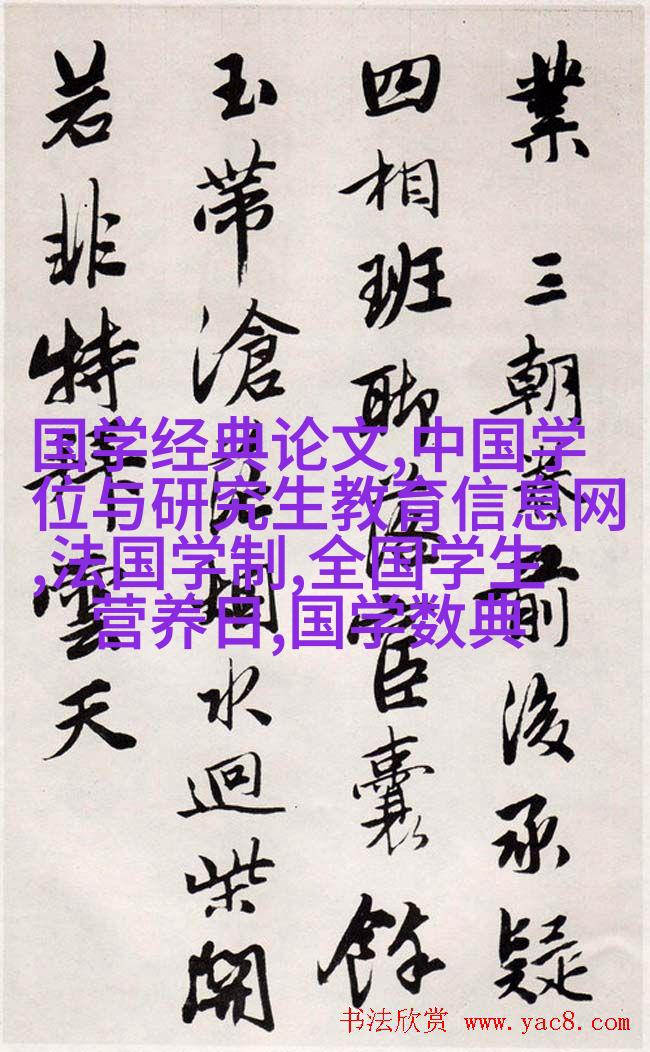 業 三朝前後承疑
四相班臣囊餘
玉帶滄水迴柴開
若非特雲天
国学经典论文,中国学
位与研究生教育信息网
,法国学制,全国学生
营养日,国学数典
书法欣赏 www.yac8.com